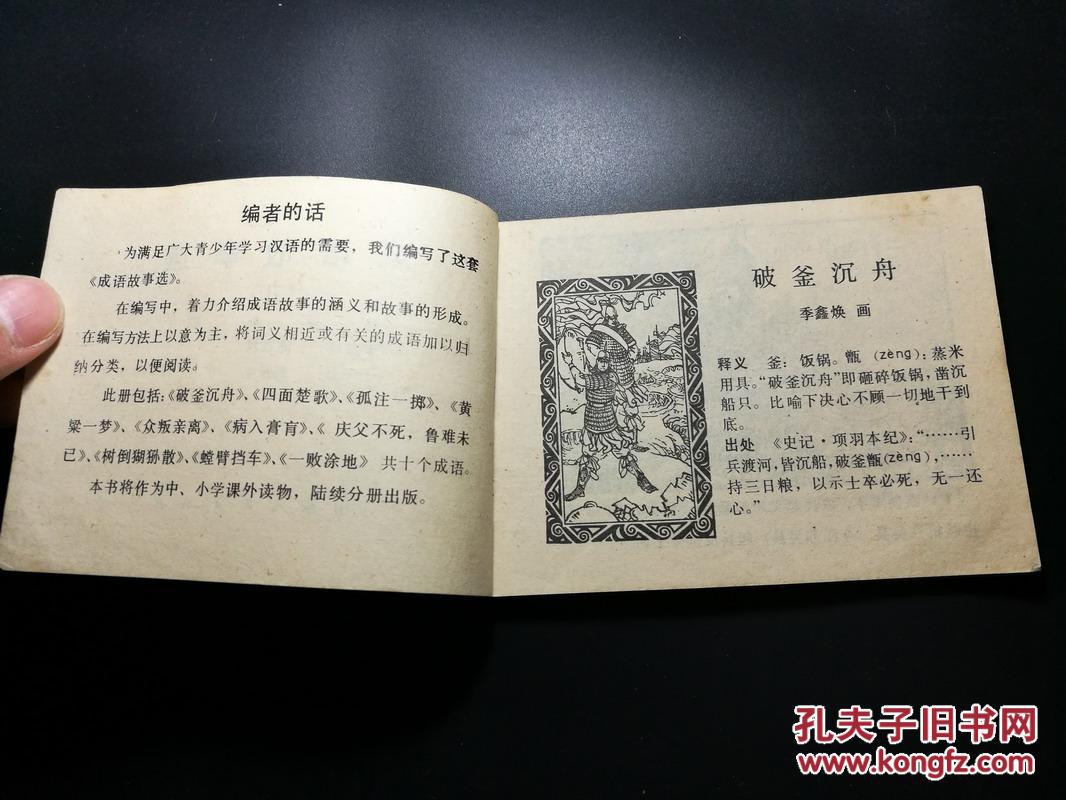 编者的话
为满足广大青少年学习汉语的需要，我们编写了这套
《成语故事选》。
在编写中，着力介绍成语故事的涵义和故事的形成。
在编写方法上以意为主，将词义相近或有关的成语加以归
纳分类，以便阅读。
此册包括：《破釜沉舟》、《四面楚歌》、《孤注一掷》、《黄
粱一梦》、《众叛亲离》、《病入膏肓》、《 庆父不死，鲁难未
已》、《树倒猢狲散》、《螳臂挡车》、《一败涂地》 共十个成语。
本书将作为中、小学课外读物，陆续分册出版。
破釜沉舟
季鑫焕 画
释义 釜：饭锅。甑（zèng）：蒸米
用具。“破釜沉舟”即砸碎饭锅，凿沉
船只。比喻下决心不顾一切地干到
底。
出处 《史记·项羽本纪》：“……引
兵渡河，皆沉船，破釜甑（zèng），……
持三日粮，以示士卒必死，无一还
心。”
孔夫子旧书网
www.kongfz.com